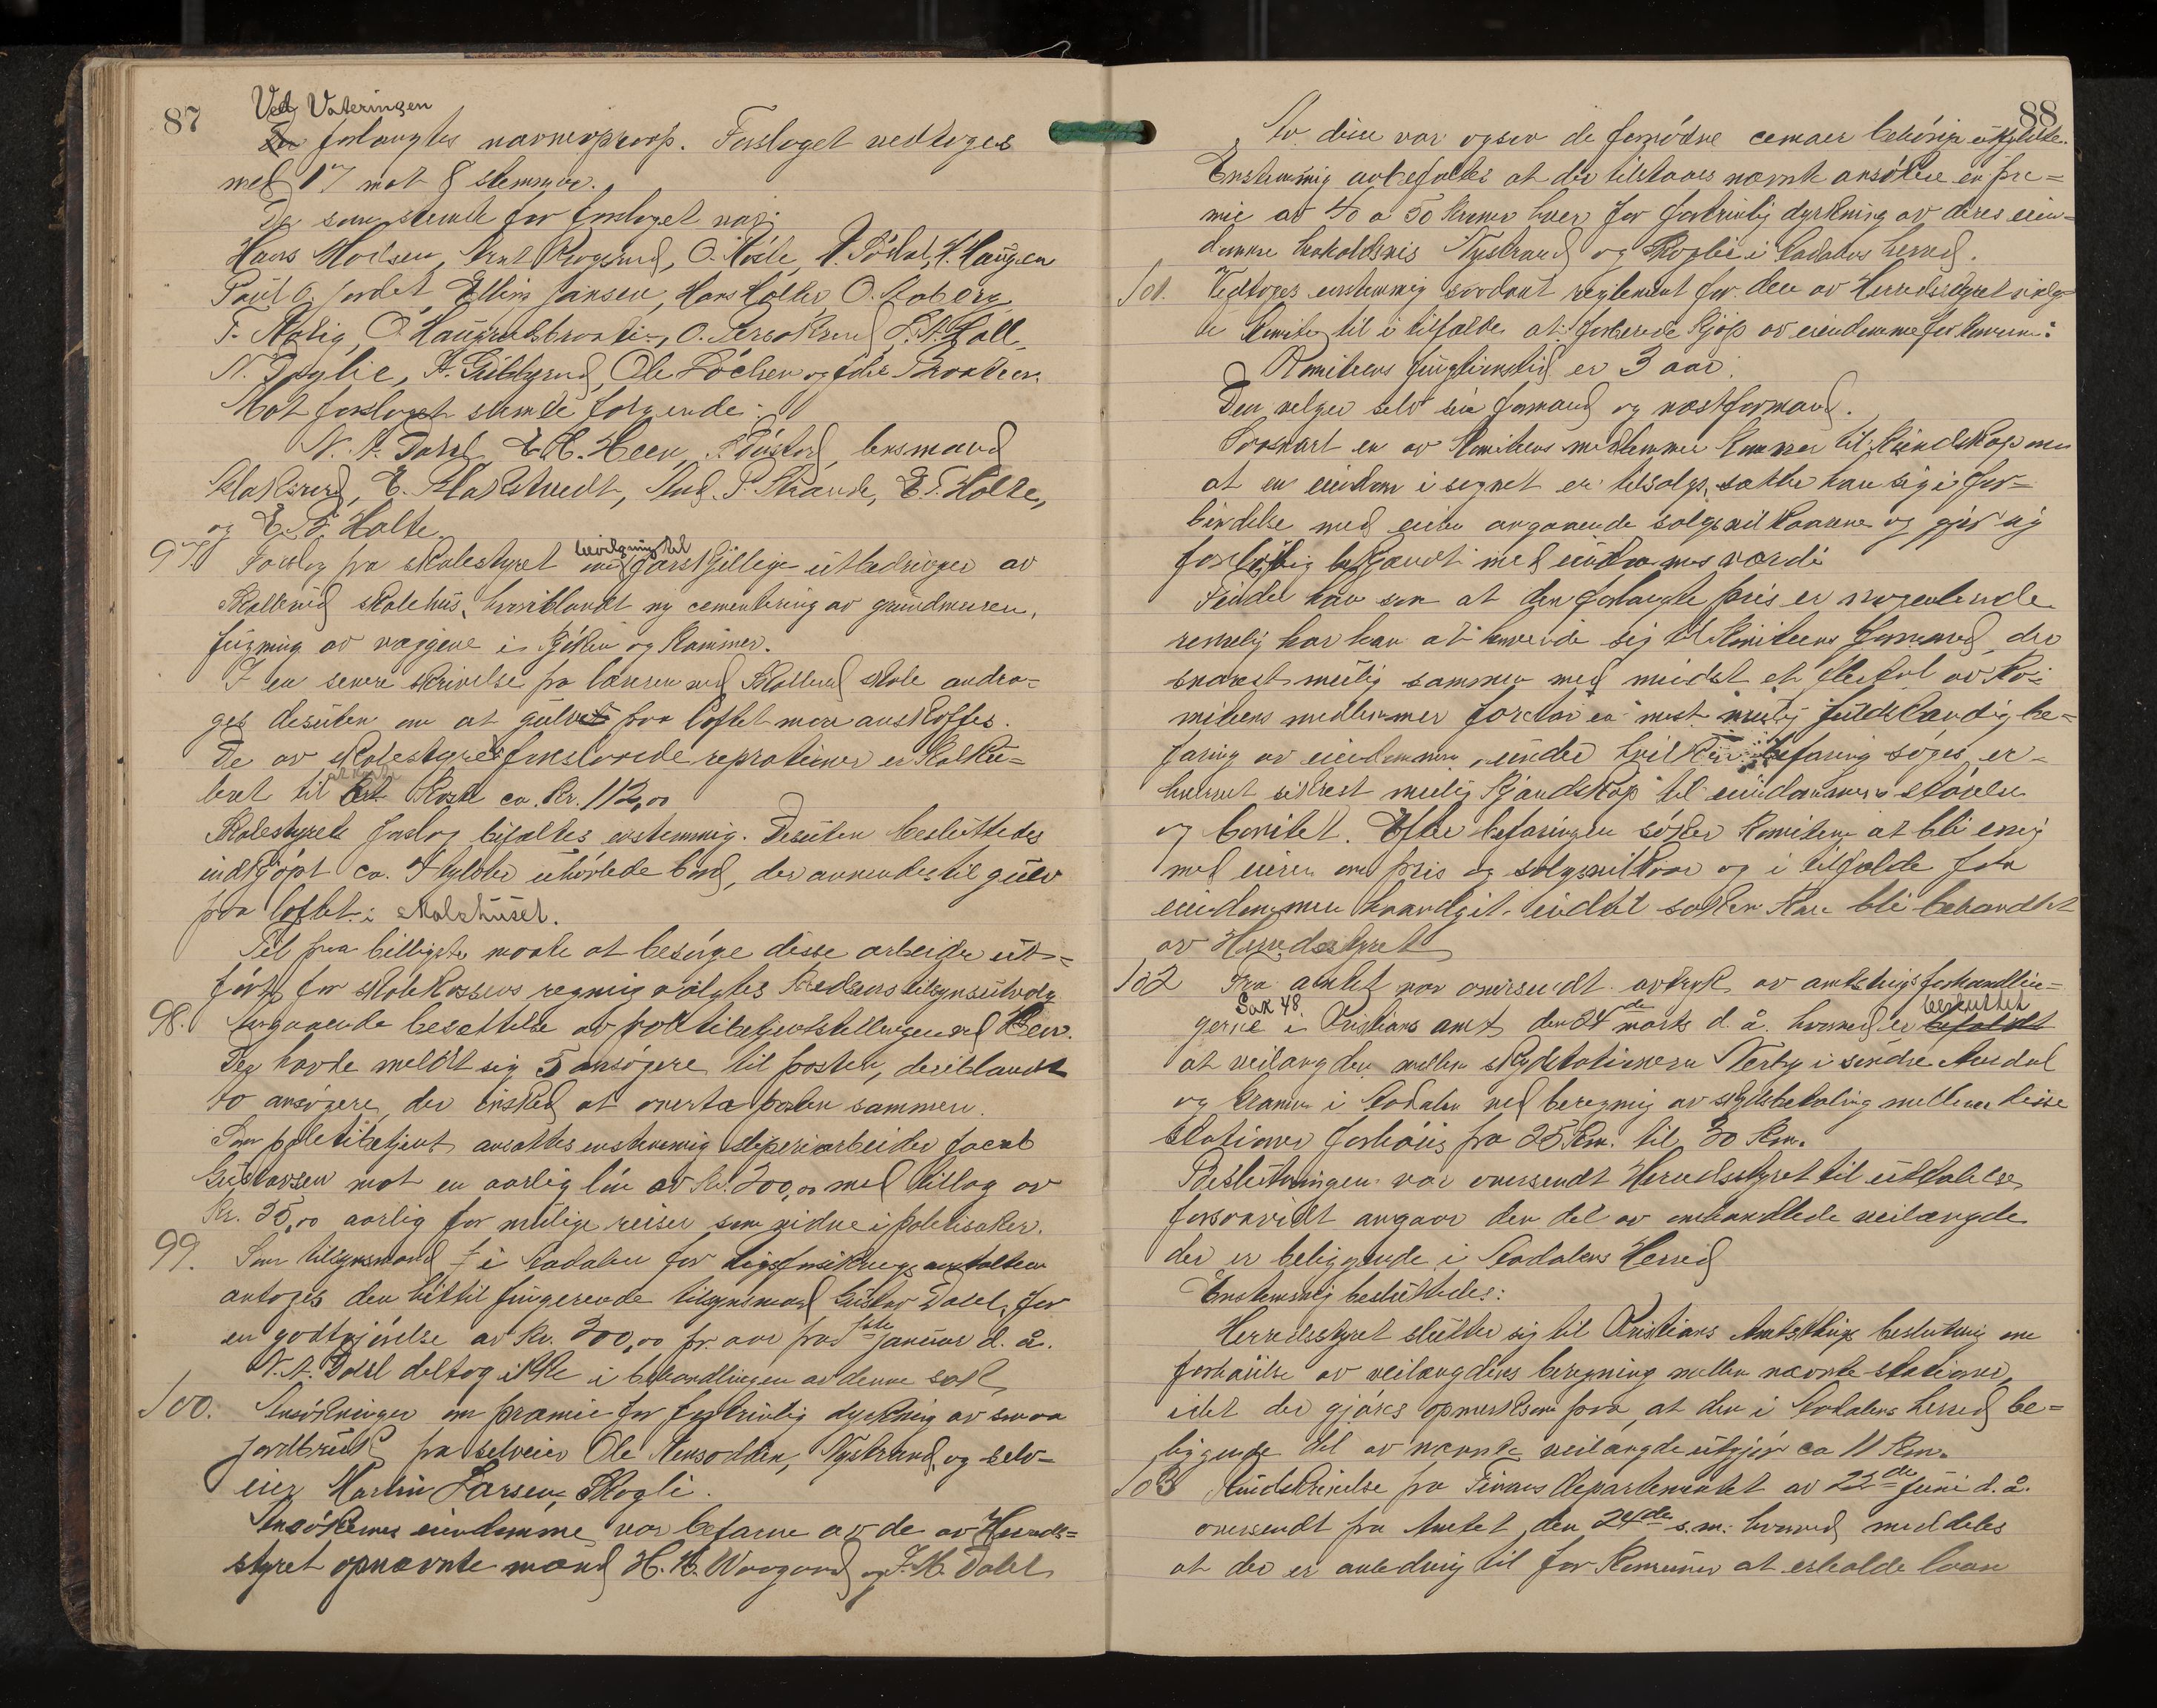 87
Ved Voteringen
forlangtes navneoprop. Forslaget vedtoges
med 17 mot 8 stemmer.
De som stemte for forslaget var:
Hans Moelsen, O. Moste, H. Haugen
Paul O. Jordet, Elling Jansen, Hans Holte, O. Aaberg
F. O. L. A. Hall
N. Ole Löchen og
Mot forslaget stemte følgende:
N. A. Dahl, E. H. Heen, lensmand
Klaksrud, E. And. P. Strande, E. T. Holte,
og E. F. Holte.
97. Forslag fra skolestyret bevilgning til forskjellige utbedringer av
skolehus, hvoriblandt ny cementering av grundmuren,
av væggene i kjøken og kammer.
I en senere skrivelse fra læreren ved skole andra=
ges desuten om at gulvet paa loftet maa anskaffes.
De av skolestyret foreslaaede reprationer er kalku=
leret til at koste ca. kr. 112,00
Skolestyrets forslag bifaltes enstemmig. Desuten besluttedes
indkjøpt ca. tylvter uhövlede bord, der anvendes til gulv
paa loftet i skolehuset.
Til paa billigste maate at besörge disse arbeider ut=
fört for skolekassens regning valgtes kredsens tilsynsutvalg
98. Angaaende besættelse av politibetjentstillingen ved Heen.
Der havde meldt sig 5 ansögere til posten, deriblandt
to ansögere, der önsket at overta posten sammen.
Som politibetjent ansattes enstemmig sliperiarbeider Jacob
Gustavsen mot en aarlig lön av kr. 200,00 med tillæg av
kr. 25,00 aarlig for mulige reiser som vidne i politisaker.
99. Som tilsynsmand i Aadalen for
antoges den hittil fungerende tilsynsmand Gustav Dahl, for
en godtgjörelse av kr. 300,00 pr. aar fra 1ste januar d. å.
N. A. Dahl deltog ikke i behandlingen av denne sak
100. Ansökninger om præmie for fortrinlig dyrkning av smaa
jordbruk fra selveier Ole Aensodden, Nystrand, og selv=
eier Martin Larsen, Skogli.
Ansökernes eiendomme var befaret av de av Herreds=
styret opnævnte mænd H. K. og J. M. Dahl
88
Av disse var ogsaa de fornödne behörig utfyldte.
Enstemmig anbefaltes at der tilstaaes nævnte ansökere en præ=
mie av 40 a 50 kroner hver for fortrinlig dyrkning av deres eien=
domme henholdsvis Nystrand og Skoglie i Aadalens herred.
101. Vedtoges enstemmig saadant reglement for den av Herredsstyret valg=
te komite til i tilfælde at forberede kjöp av eiendomme for kommunen:
Komiteens funktionstid er 3 aar.
Den vælger selv sin formand og næstformand.
Saasnart en av komiteens medlemmer kommer til kundskap om
at en eiendom i sognet er tilsalgs, sætter han sig i for=
bindelse med eieren angaaende salgsvilkaarene og gjör sig
forelöbig bekjendt med eiendommens værdi
Finder han saa at den forlangte pris er nogenlunde
rimelig har han at henvende sig til komiteens formand, der
snarest mulig sammen med mindst et flertal av ko=
miteens medlemmer foretar en mest mulig fuldstændig be=
faring av eiendommen, under hvilken befaring söges er=
hvervet sikrest mulig kjendskap til eiendommens störrelse
og bonitet. Efter befaringen söker komiteen at bli enig
med eieren om pris og salgsvilkaar og i tilfælde faa
eiendommen haandgit indtil saken kan bli behandlet
av Herredsstyret
102 Fra amtet var oversendt avtryk av amtstingsforhandlin=
gerne i Kristians amt den 24de marts d. å. Sak 48 hvorved er befaldt besluttet
at veilængden mellem skydsstationerne Nerby i söndre Aurdal
og i Aadalen ved beregning av skydsbetaling mellem disse
stationer forhöies fra 25 km. til 30 km.
Beslutningen var oversendt Herredsstyret til uttalelse
forsaavidt angaar den del av omhandlede veilængde
der er beliggende i Aadalens Herred
Enstemmig besluttedes:
Herredsstyret slutter sig til Kristians Amtstings beslutning om
forhöielse av veilængdens beregning mellem nævnte stationer,
idet der gjöres opmerksom paa, at den i Aadalens herred be=
liggende del av nævnte veilængde utgjör ca 11 km.
103 Rundskrivelse fra Finansdepartementet av 22de juni d. å.
oversendt fra Amtet den 24de s. m. hvorved meddeles
at der er anledning til for Kommuner at erholde laan